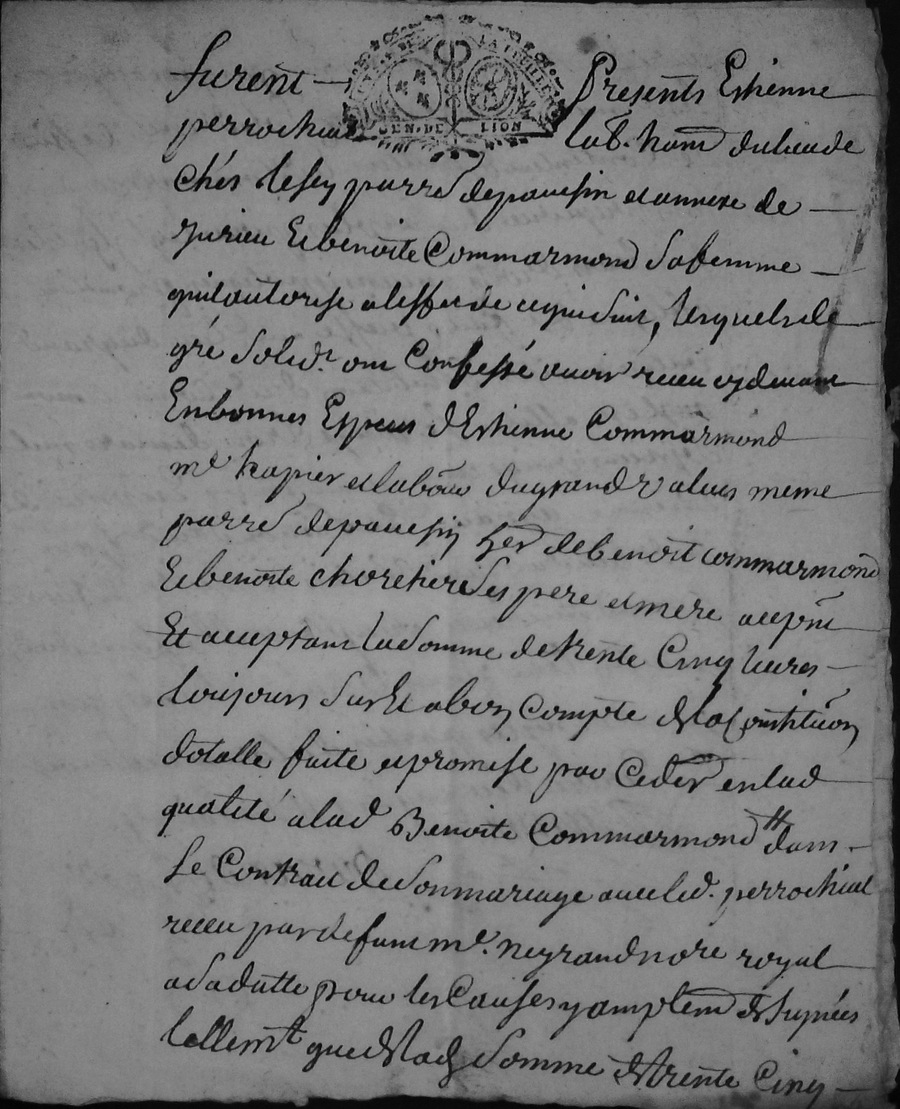 furent Presents Estienne
GEN. DE LION
perrochias lab. ham dulieu de
Chés parre depavesin et annexe de
jurieu Et benoite Commarmond sa femme
quil autorise a leffet de ce qui suit, lesquels de
gré solid. ont Confessé avoir receu cydevant
En bonnes Especes dEstienne Commarmond
me papier et labou du grand valuis meme
parre depavesin her de benoit commarmond
Et benoite ses pere et mere acepnt
Et aceptant la somme de trente Cinq livres
toujours sur Et abon compte de la Constituon
dotalle faite et promise par Ceder en lad
qualité alad Benoite Commarmond dans
Le Contrait de son mariage avec led. perrochiat
receu par defunt me. neyrand nore royal
a sa datte pour les Causes y amplemt Exprimées
tellemt que de lad somme de trente Cinq